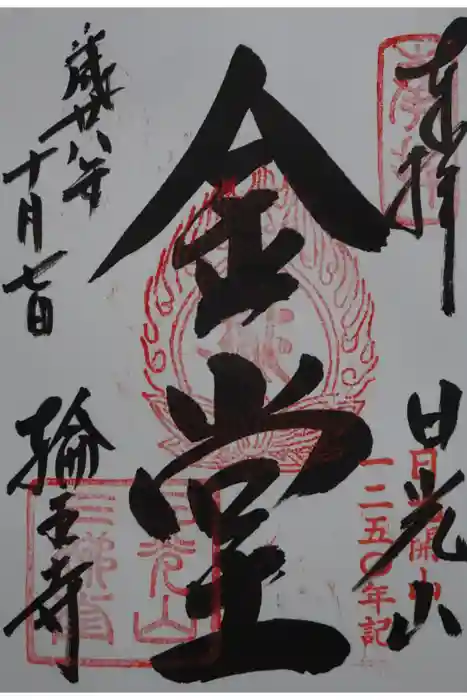 奉拝
日光山
日光開山
一二五〇年記
金堂
歳廿八年
十月七日
輪王寺